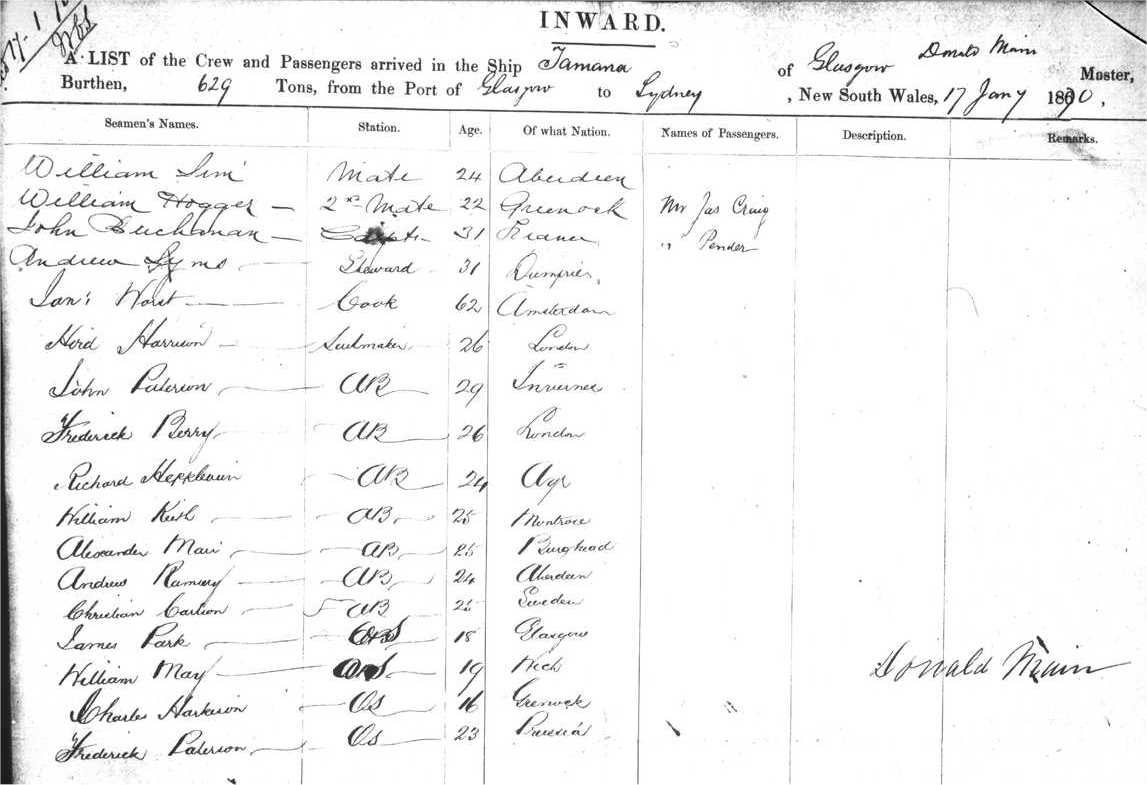 17 - 1
INWARD.
A LIST of the Crew and Passengers arrived in the Ship Tamana of Glasgow Donald Main Master,
Burthen, 629 Tons, from the Port of Glasgow to Sydney, New South Wales, 17 Jany 1870,
Seamen's Names. Station. Age. Of what Nation. Names of Passengers. Description. Remarks.
William Sim Mate 24 Aberdeen
William Hogger — 2nd Mate 22 Greenock Mr Jas Craig
John Buchanan — 31 France " Pender
Andrew Syms Steward 31 Dumfries
Worst Cook 62 Amsterdam
Hird Harrison Sailmaker 26 London
John Paterson AB 29 Inverness
Frederick Berry AB 26 London
Richard AB 24 Ayr
William Keith AB 25 Montrose
Alexander Main AB 25 Burghead
Andrew Ramsey AB 24 Aberdeen
Christian Carlson AB 25 Sweden
James Park OS 18 Glasgow
William May OS 19 Wick
Donald Main
Charles Harkison OS 16 Greenock
Frederick Paterson OS 23 Prussia